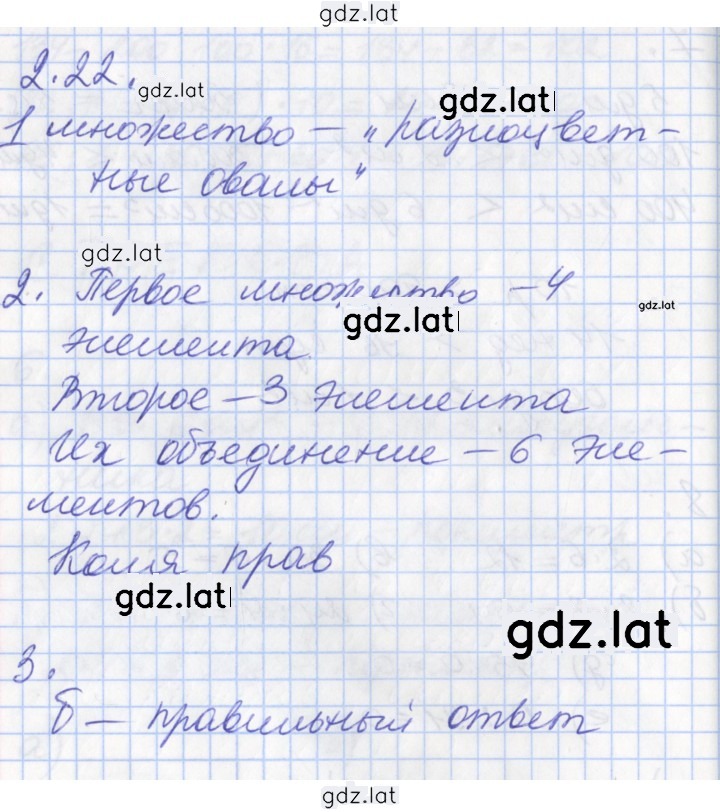 gdz.lat
2.22.
gdz.lat
gdz.lat
1 множество – „разноцвет-
ные овалы"
gdz.lat
2. Первое множество – 4
gdz.lat
gdz.lat
элемента
Второе – 3 элемента
Их объединение – 6 эле-
ментов.
Коля прав
gdz.lat
gdz.lat
3.
б – правильный ответ
gdz.lat